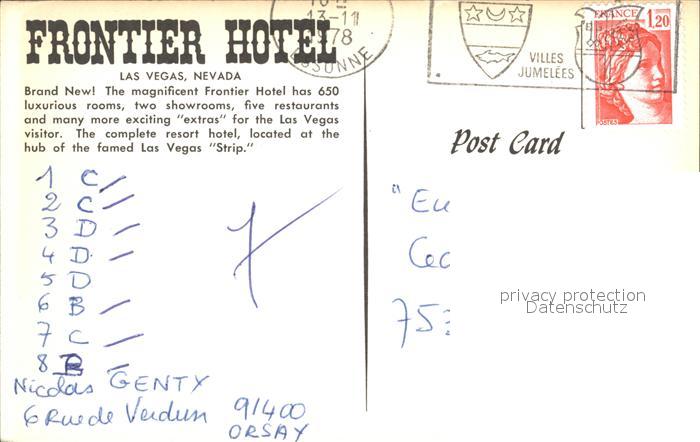 FRONTIER HOTEL
LAS VEGAS, NEVADA
Brand New! The magnificent Frontier Hotel has 650
luxurious rooms, two showrooms, five restaurants
and many more exciting "extras" for the Las Vegas
visitor. The complete resort hotel, located at the
hub of the famed Las Vegas "Strip."
13-11
1978
ESSONNE
VILLES
JUMELÉES
FRANCE
1,20
POSTES
Post Card
1 C
2 C
3 D
4 D
5 D
6 B
7 C
8
Nicolas GENTY
6 Rue de Verdun 91400
ORSAY
75
privacy protection
Datenschutz